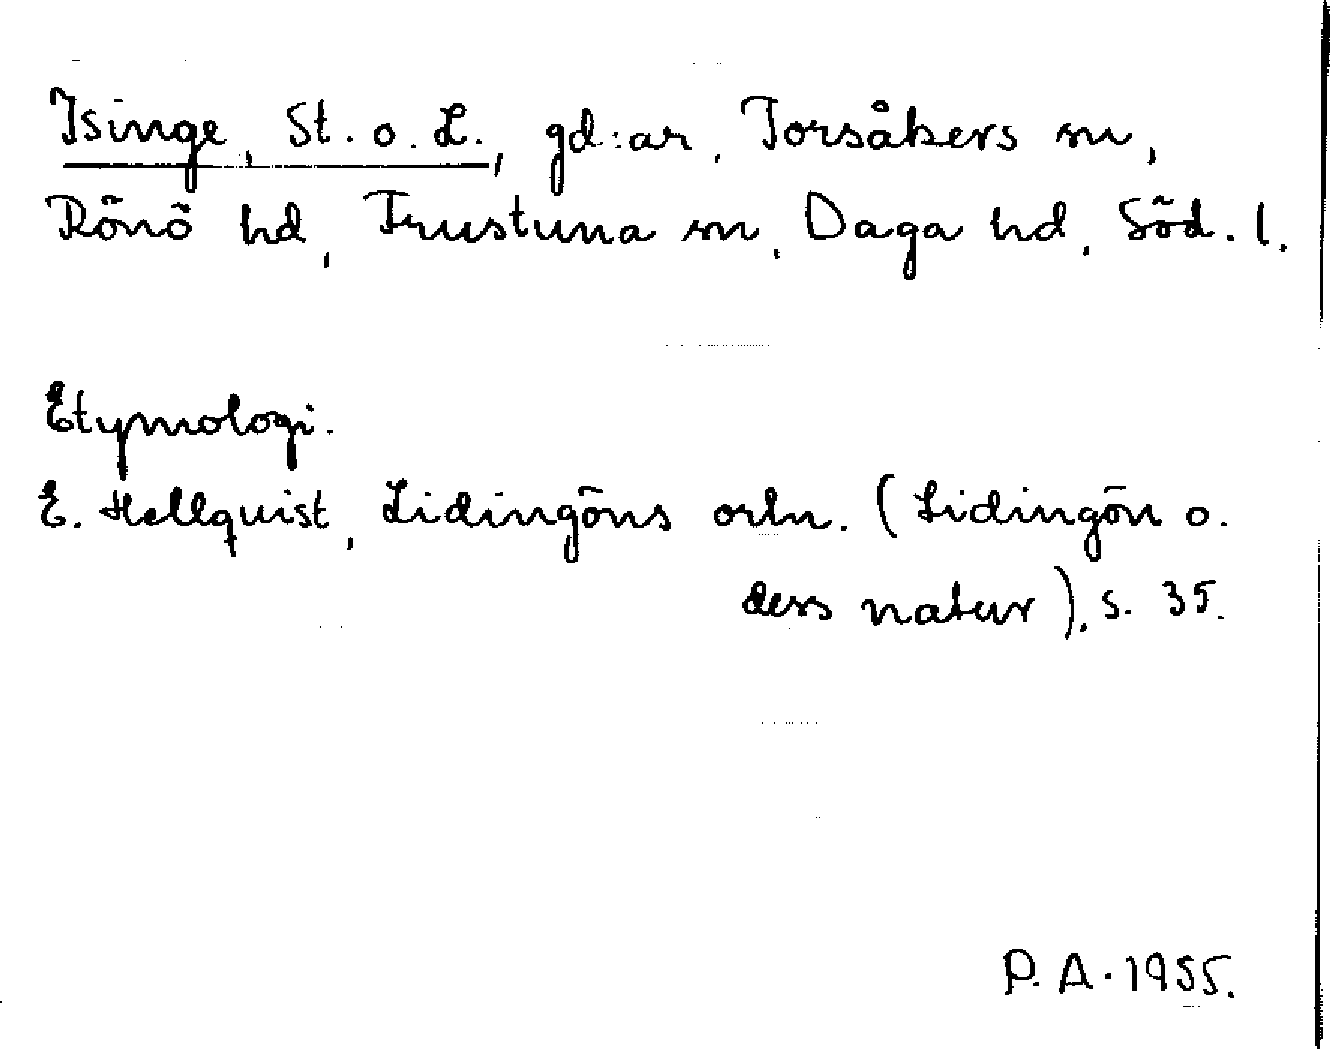 Isinge, St. o. L., gd:ar, Torsåkers sn,
Rönö hd, Frustuna sn, Daga hd, Söd. l.
Etymologi.
E. Hellquist, Lidingöns ortn. (Lidingön o.
dess natur), s. 35.
P. A. 1955.